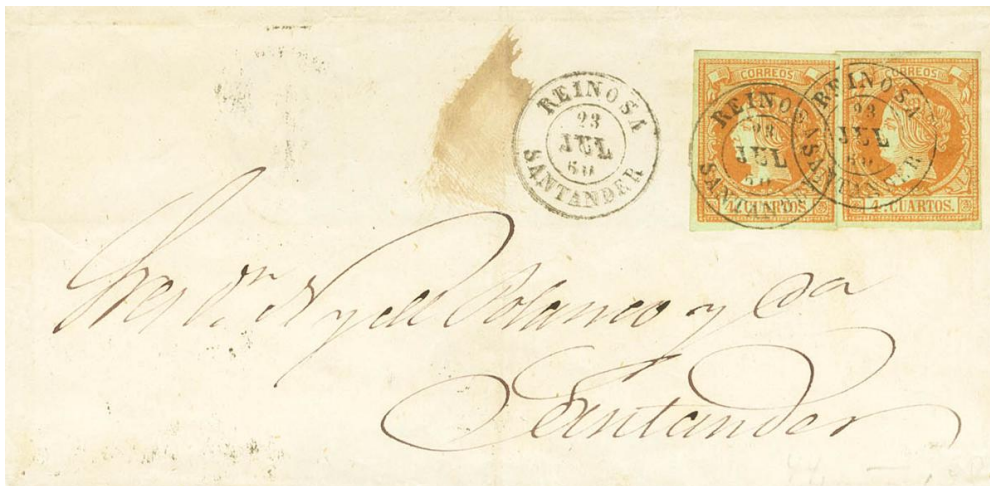 REINOSA
23
JUL
60
SANTANDER
CORREOS
REINOSA
23
JUL
60
SANTANDER
4 CUARTOS
CORREOS
REINOSA
23
JUL
60
SANTANDER
4 CUARTOS.
Sres Dn y Polanco y Ca
Santander